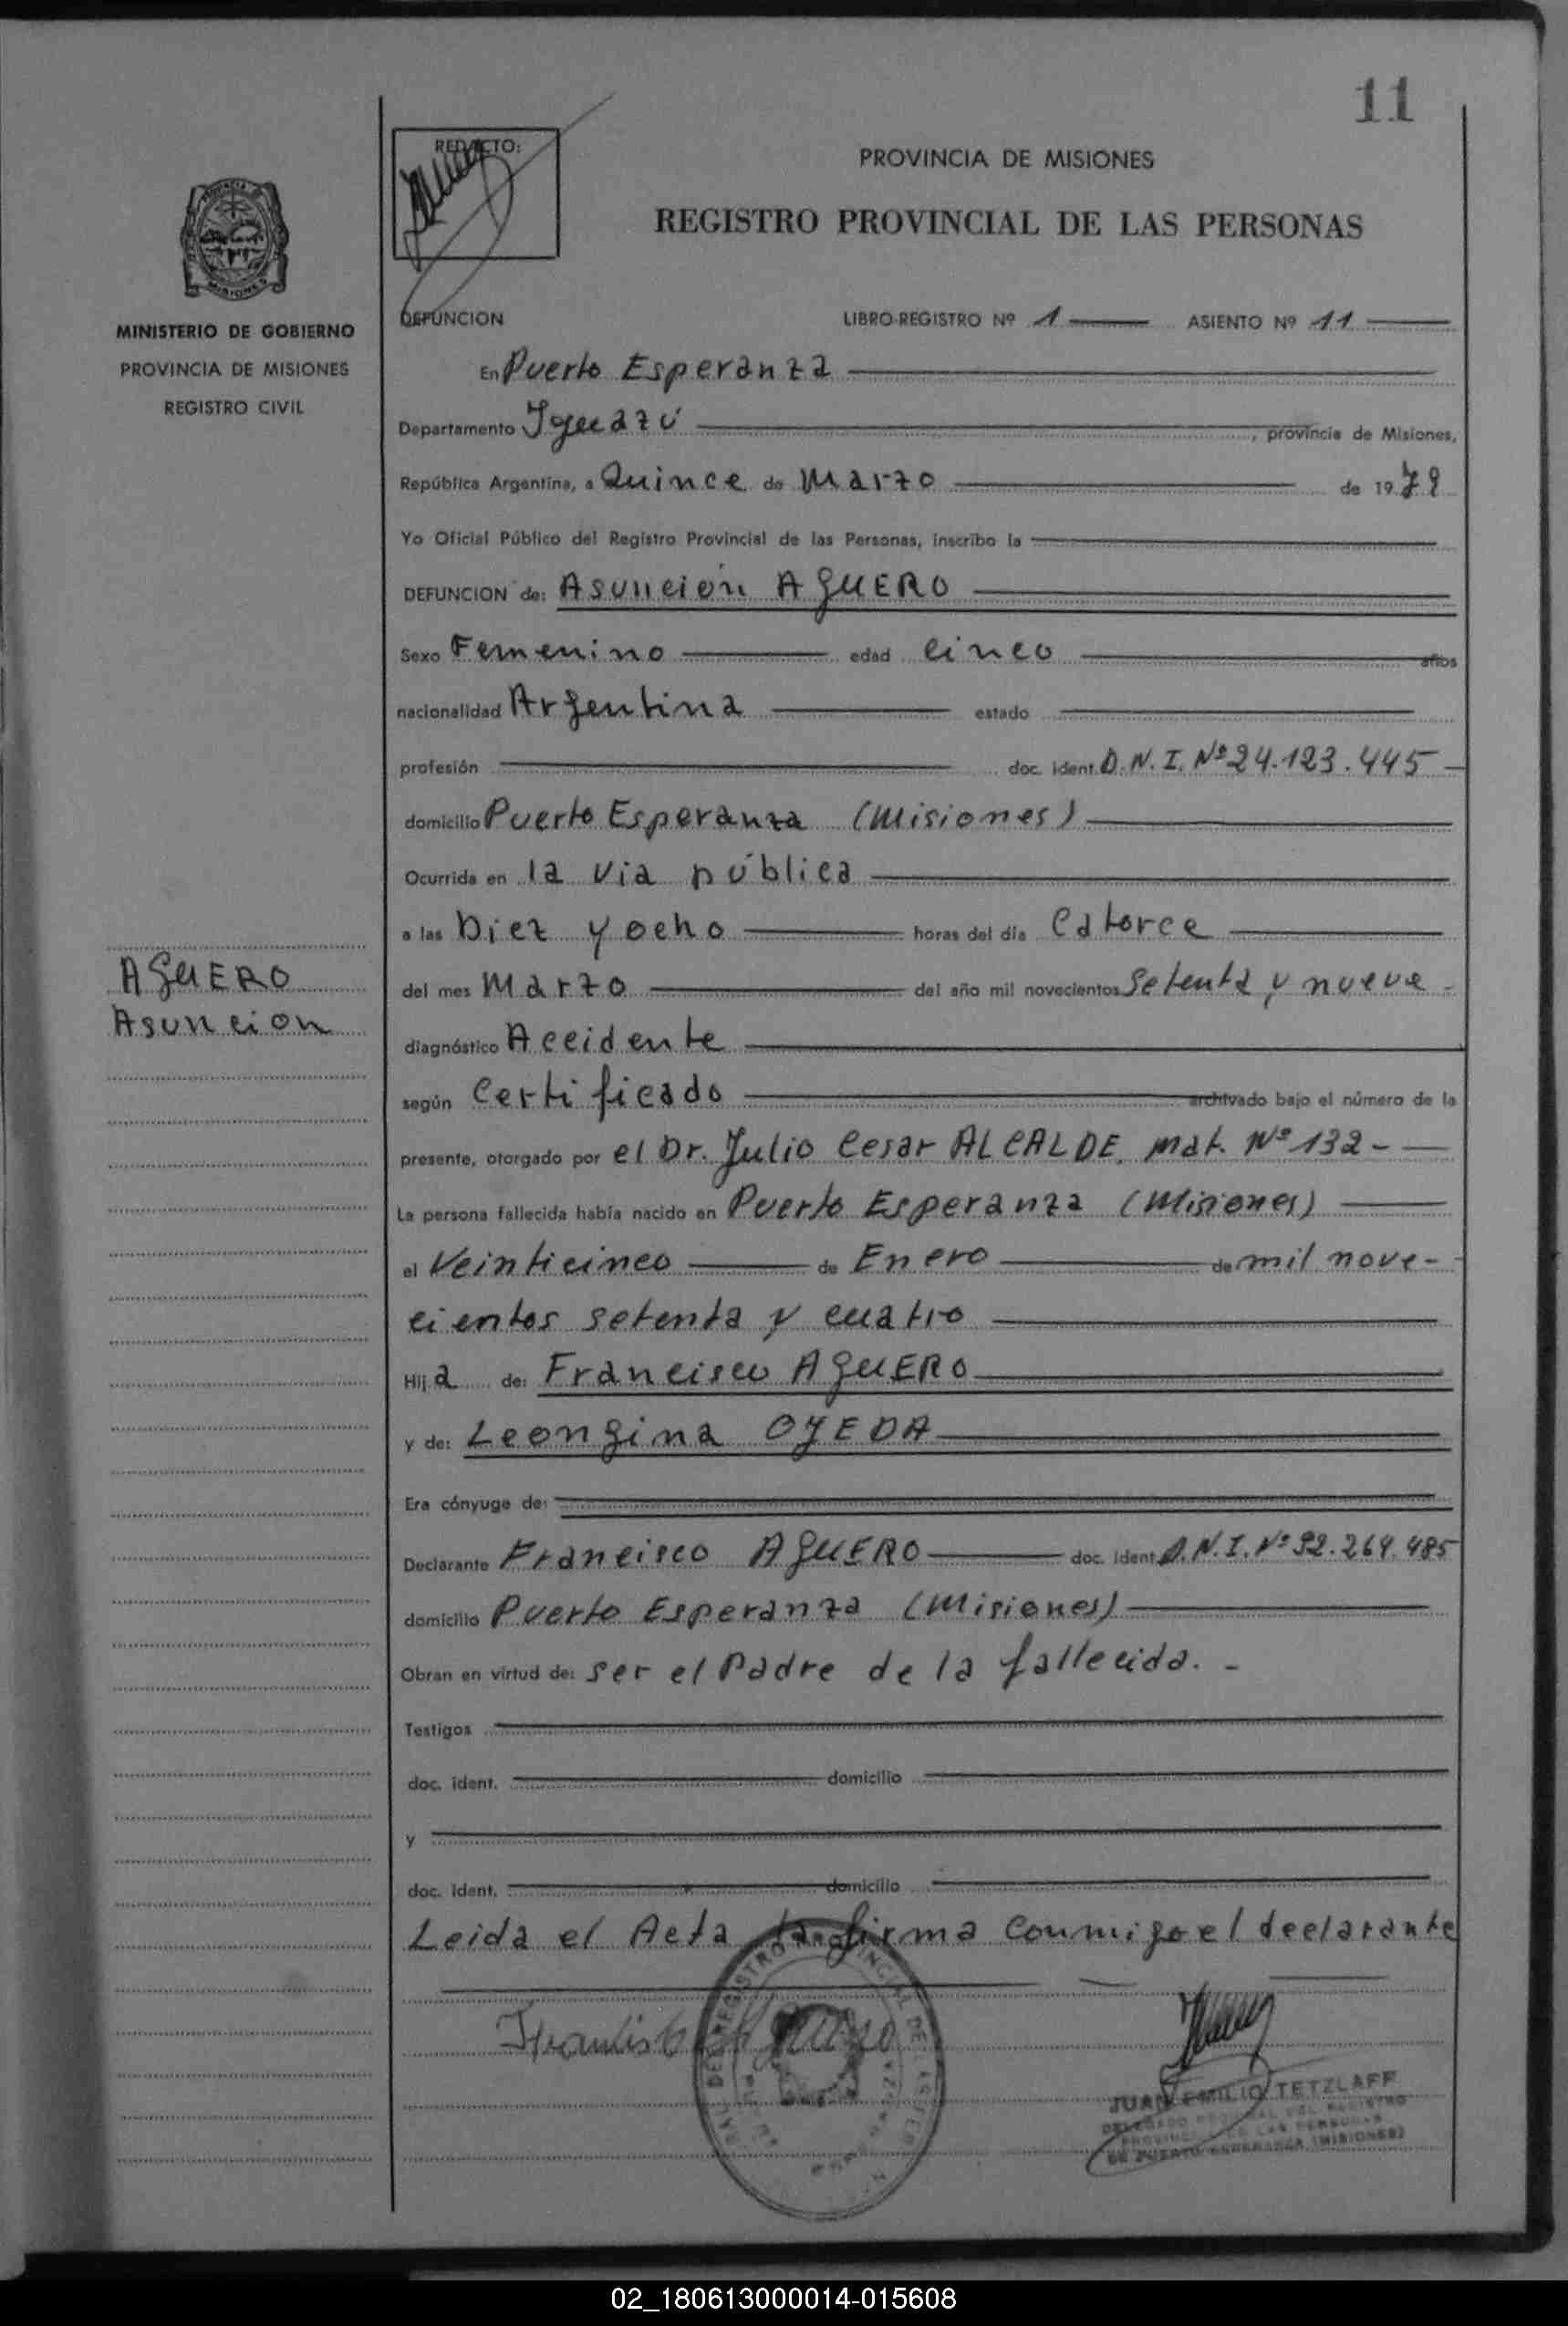 11
REDACTO:
PROVINCIA DE MISIONES
REGISTRO PROVINCIAL DE LAS PERSONAS
MISIONES
MINISTERIO DE GOBIERNO
PROVINCIA DE MISIONES
REGISTRO CIVIL
DEFUNCION LIBRO-REGISTRO Nº 1 ASIENTO Nº 11
En Puerto Esperanza
Departamento Iguazú, provincia de Misiones,
República Argentina, a Quince de Marzo de 1979
Yo Oficial Público del Registro Provincial de las Personas, inscribo la
DEFUNCION de: Asunción AgUERO
Sexo Femenino edad cinco años
nacionalidad Argentina estado
profesión doc. ident. D.N.I. Nº 24.123.445
domicilio Puerto Esperanza (Misiones)
Ocurrida en la via pública
a las Diez y ocho horas del día Catorce
AgUERO
Asuncion
del mes Marzo del año mil novecientos Setenta y nueve -
diagnóstico Accidente
según Certificado archivado bajo el número de la
presente, otorgado por el Dr. Julio Cesar ALCALDE. Mat. Nº 132 -
La persona fallecida había nacido en Puerto Esperanza (Misiones)
el Veinticinco de Enero de mil nove-
cientos setenta y cuatro
Hija de: Francisco AgUERO
y de: Leongina OJEDA
Era cónyuge de:
Declarante Francisco AgUERO doc. ident. D.N.I. Nº 92.264.485
domicilio Puerto Esperanza (Misiones)
Obran en virtud de: ser el Padre de la fallecida. -
Testigos
doc. ident. domicilio
y
doc. ident. domicilio
Leida el Acta la firma conmigo el declarante
JUAN EMILIO TETZLAFF
DELEGADO DEL REGISTRO
PROVINCIAL DE LAS PERSONAS
DE PUERTO ESPERANZA (MISIONES)
02_180613000014-015608